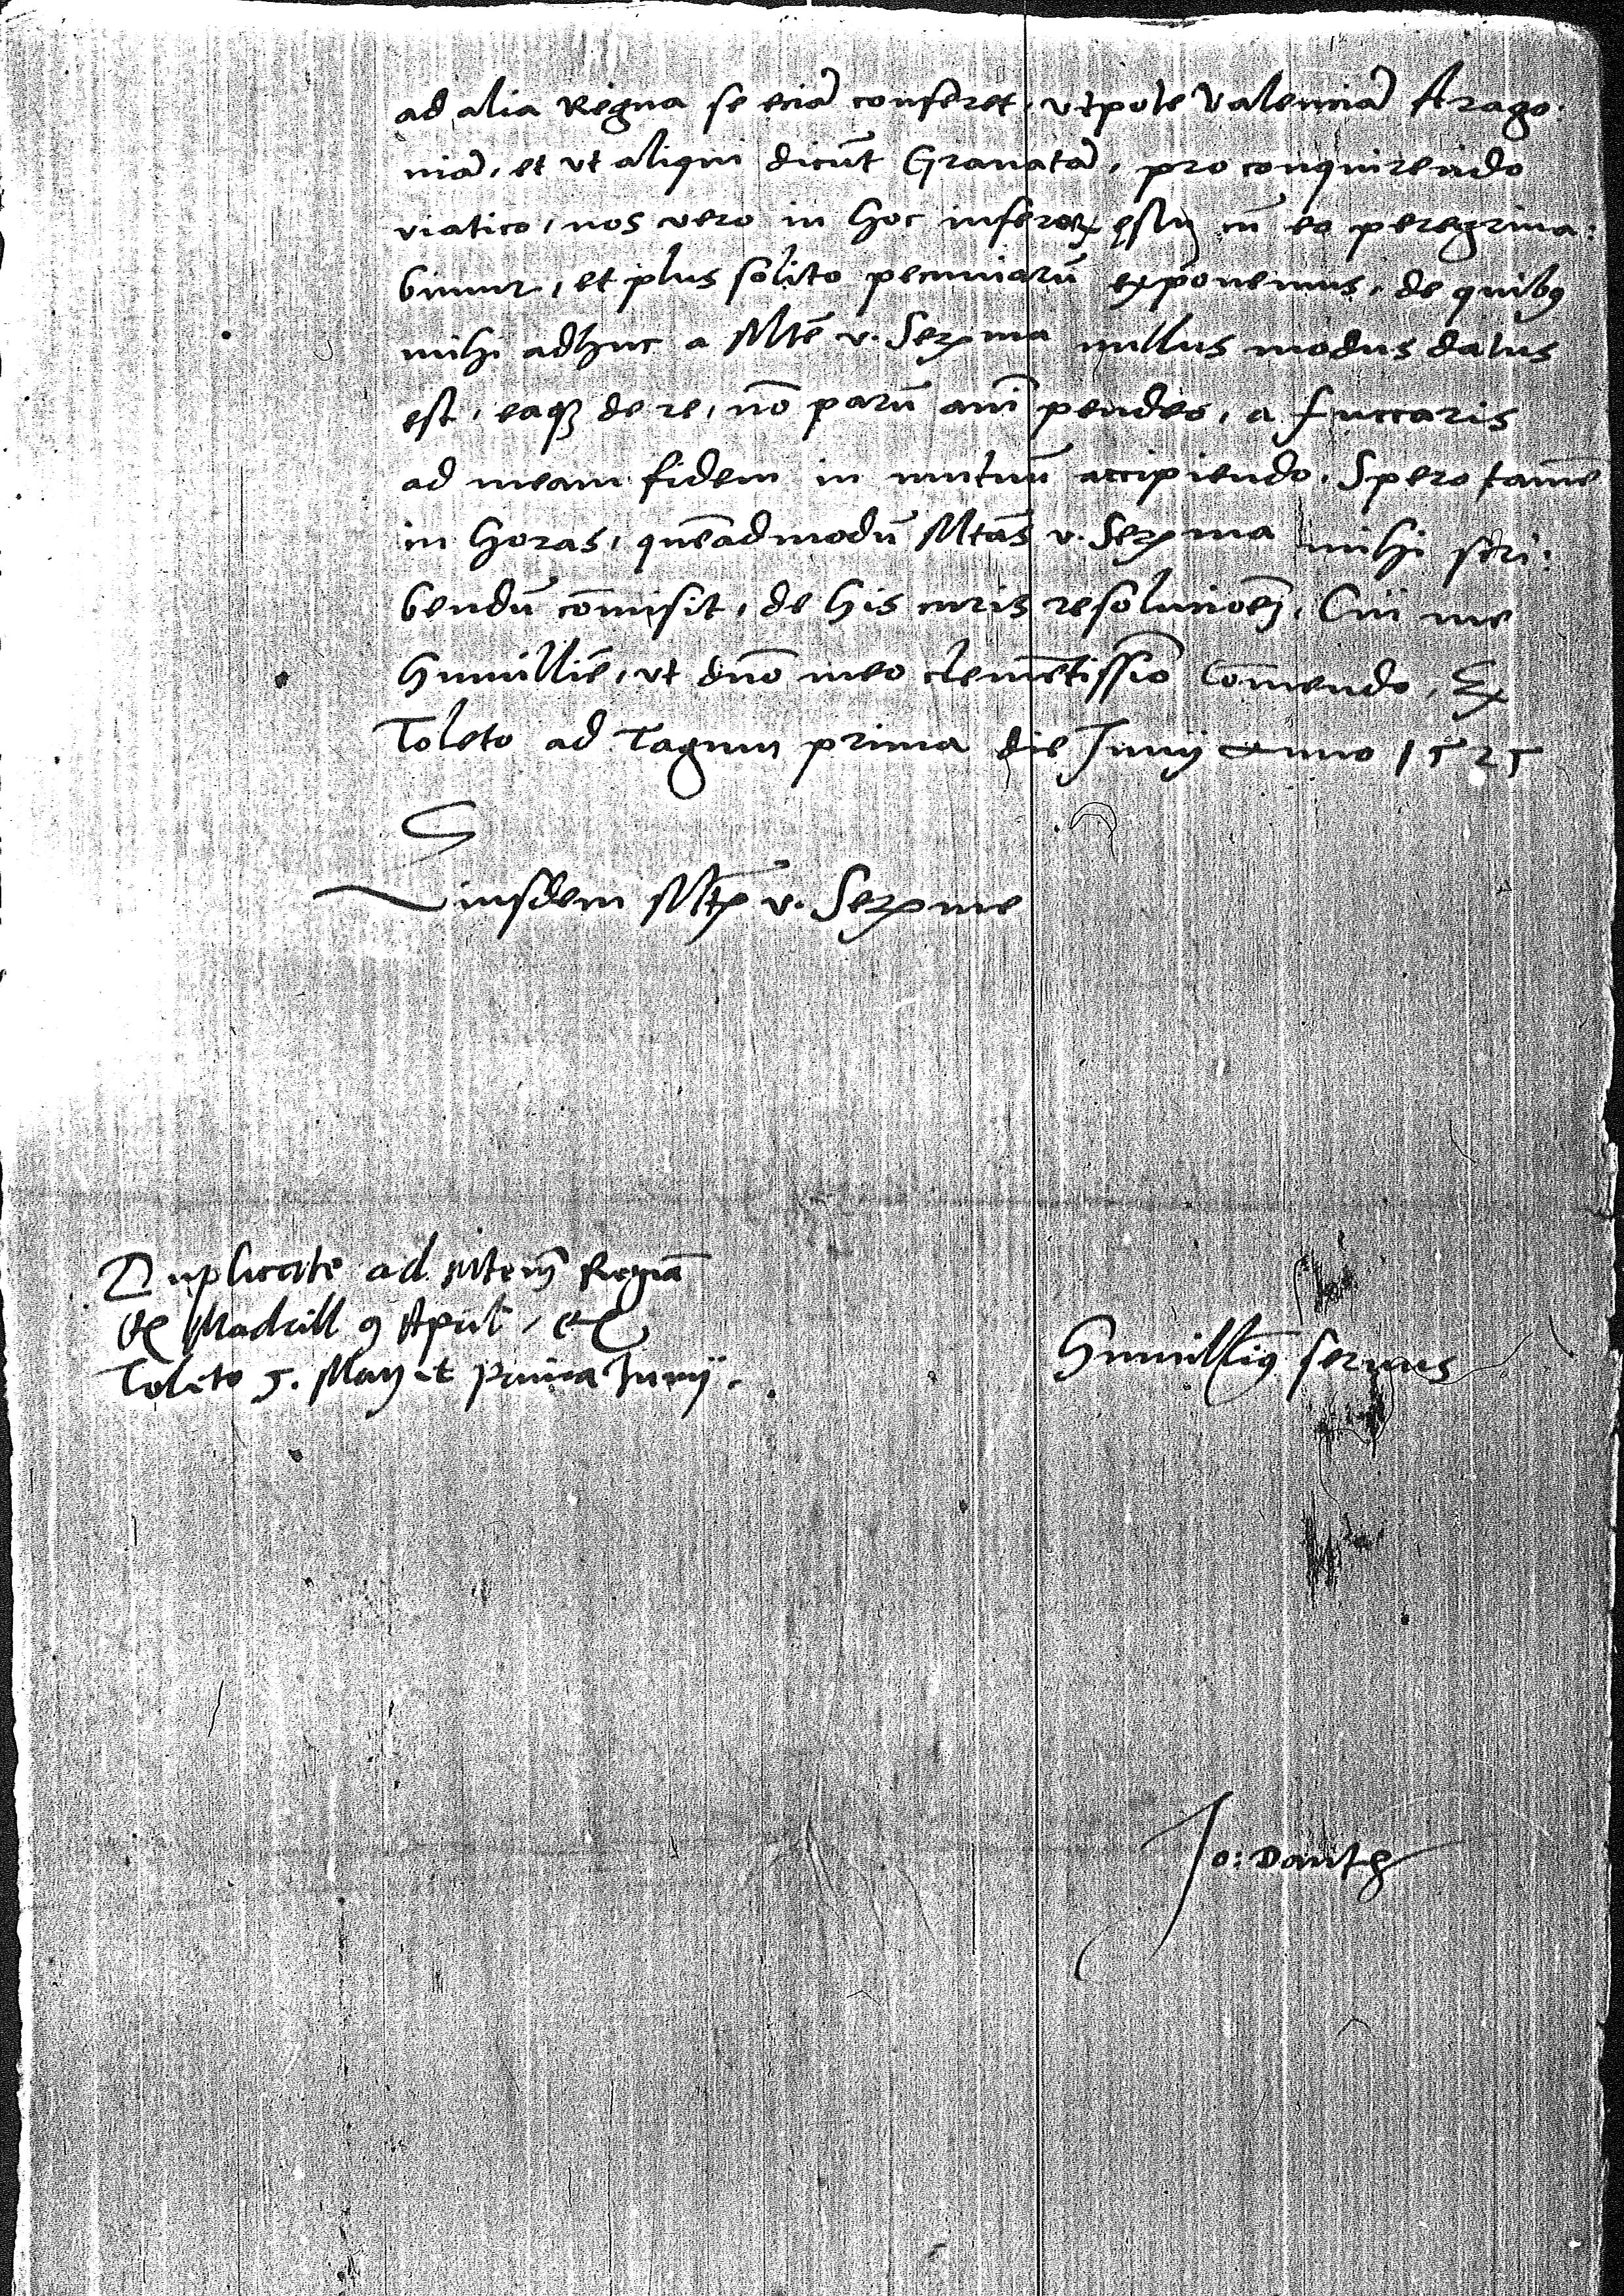 ad alia Regna se eciā conferet, utpote Valenciā Arago:
niā, et ut aliqui dicūt Granatā, pro conquirendo
viatico, nos vero in hoc ęstu cū eo peregrina:
bimur, et plus solito pecuniarū exponemus, de quibꝰ
mihi adhuc a Mte v. Serma nullus modus datus
est, eaqꝫ de re, nō parū aīi pendeo, a fuccaris
ad meam fidem in mutuū accipiendo. Spero tamē
in horas, quēadmodū Mtas v. Serma mihi scri:
bendū cōmisit, de his curis resolucioēm. Cui me
humillie, ut dno meo clemētissīo Cōmendo. Ex
Toleto ad Tagum prima die Junij Anno 1525
Eiusdem Mtis v. Serme
Duplicate ad Mtem Regiā
ex Madrill 9 April, ex
Toleto 5. Maij et prima Junij.
Humillimꝰ servus
Jo: Dantꝭ